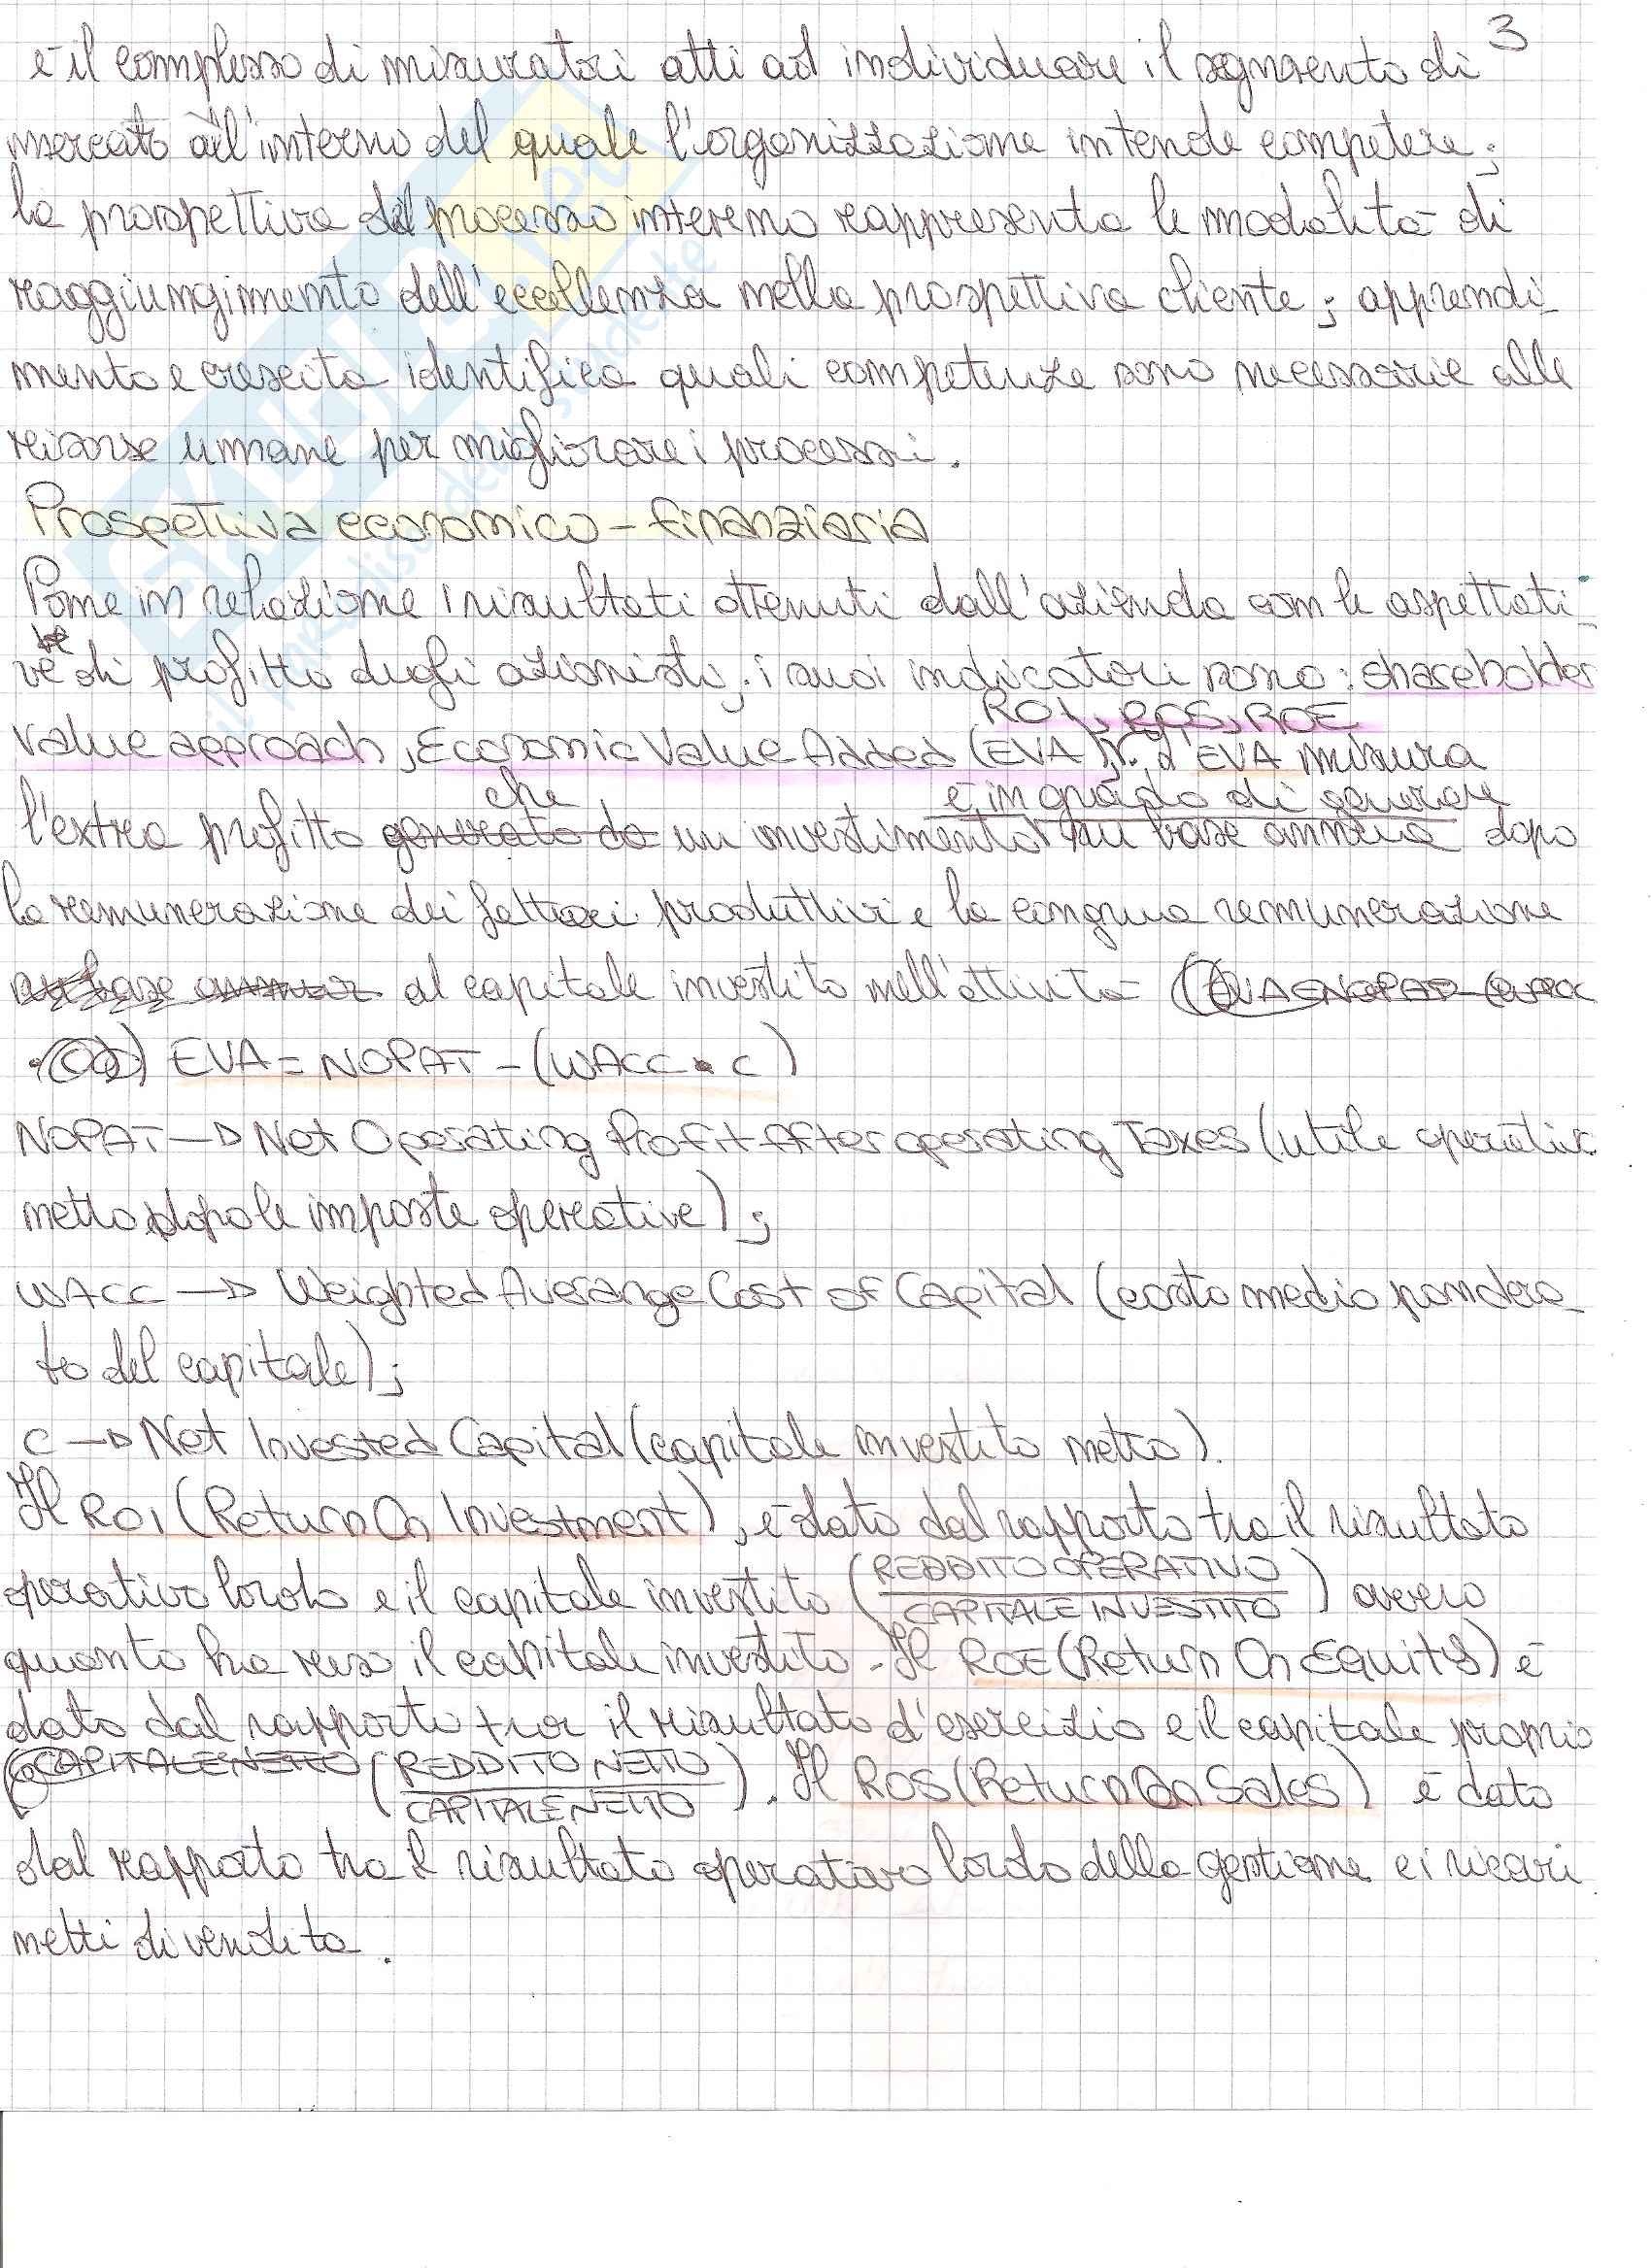 3
è il complesso di misuratori atti ad individuare il segmento di
mercato all'interno del quale l'organizzazione intende competere;
la prospettiva del processo interno rappresenta le modalità di
raggiungimento dell'eccellenza nella prospettiva cliente; apprendi-
mento e crescita identifica quali competenze sono necessarie alle
risorse umane per migliorare i processi.
Prospettiva economico-finanziaria
Pone in relazione i risultati ottenuti dall'azienda con le aspettati-
ve di profitto degli azionisti; i suoi indicatori sono: shareholder
ROI, ROS, ROE
value approach, Economic Value Added (EVA), L'EVA misura
che è in grado di generare
l'extra profitto generato da un investimento su base annua dopo
la remunerazione dei fattori produttivi e la congrua remunerazione
su base annua al capitale investito nell'attività (EVA=NOPAT-(WACC
EVA = NOPAT - (WACC • C)
NOPAT → Net Operating Profit After operating Taxes (utile operativ.
netto dopo le imposte operative);
WACC → Weighted Average Cost of Capital (costo medio pondera-
to del capitale);
C → Net Invested Capital (capitale investito netto).
Il ROI (Return On Investment), è dato dal rapporto tra il risultato
operativo lordo e il capitale investito (REDDITO OPERATIVO / CAPITALE INVESTITO) ovvero
quanto ha reso il capitale investito. Il ROE (Return On Equity) è
dato dal rapporto tra il risultato d'esercizio e il capitale proprio
CAPITALE NETTO (REDDITO NETTO / CAPITALE NETTO). Il ROS (Return On Sales) è dato
dal rapporto tra il risultato operativo lordo della gestione e i ricavi
netti di vendita.